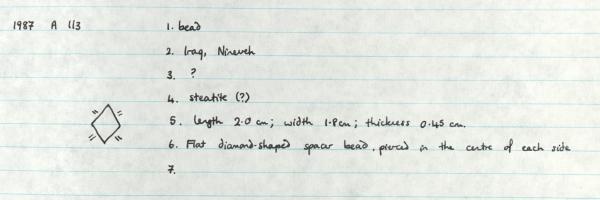 1987 A 113
1. bead
2. Iraq, Nineveh
3. ?
4. steatite (?)
5. length 2.0 cm; width 1.8cm; thickness 0.45 cm.
6. Flat diamond-shaped spacer bead, pierced in the centre of each side
7.